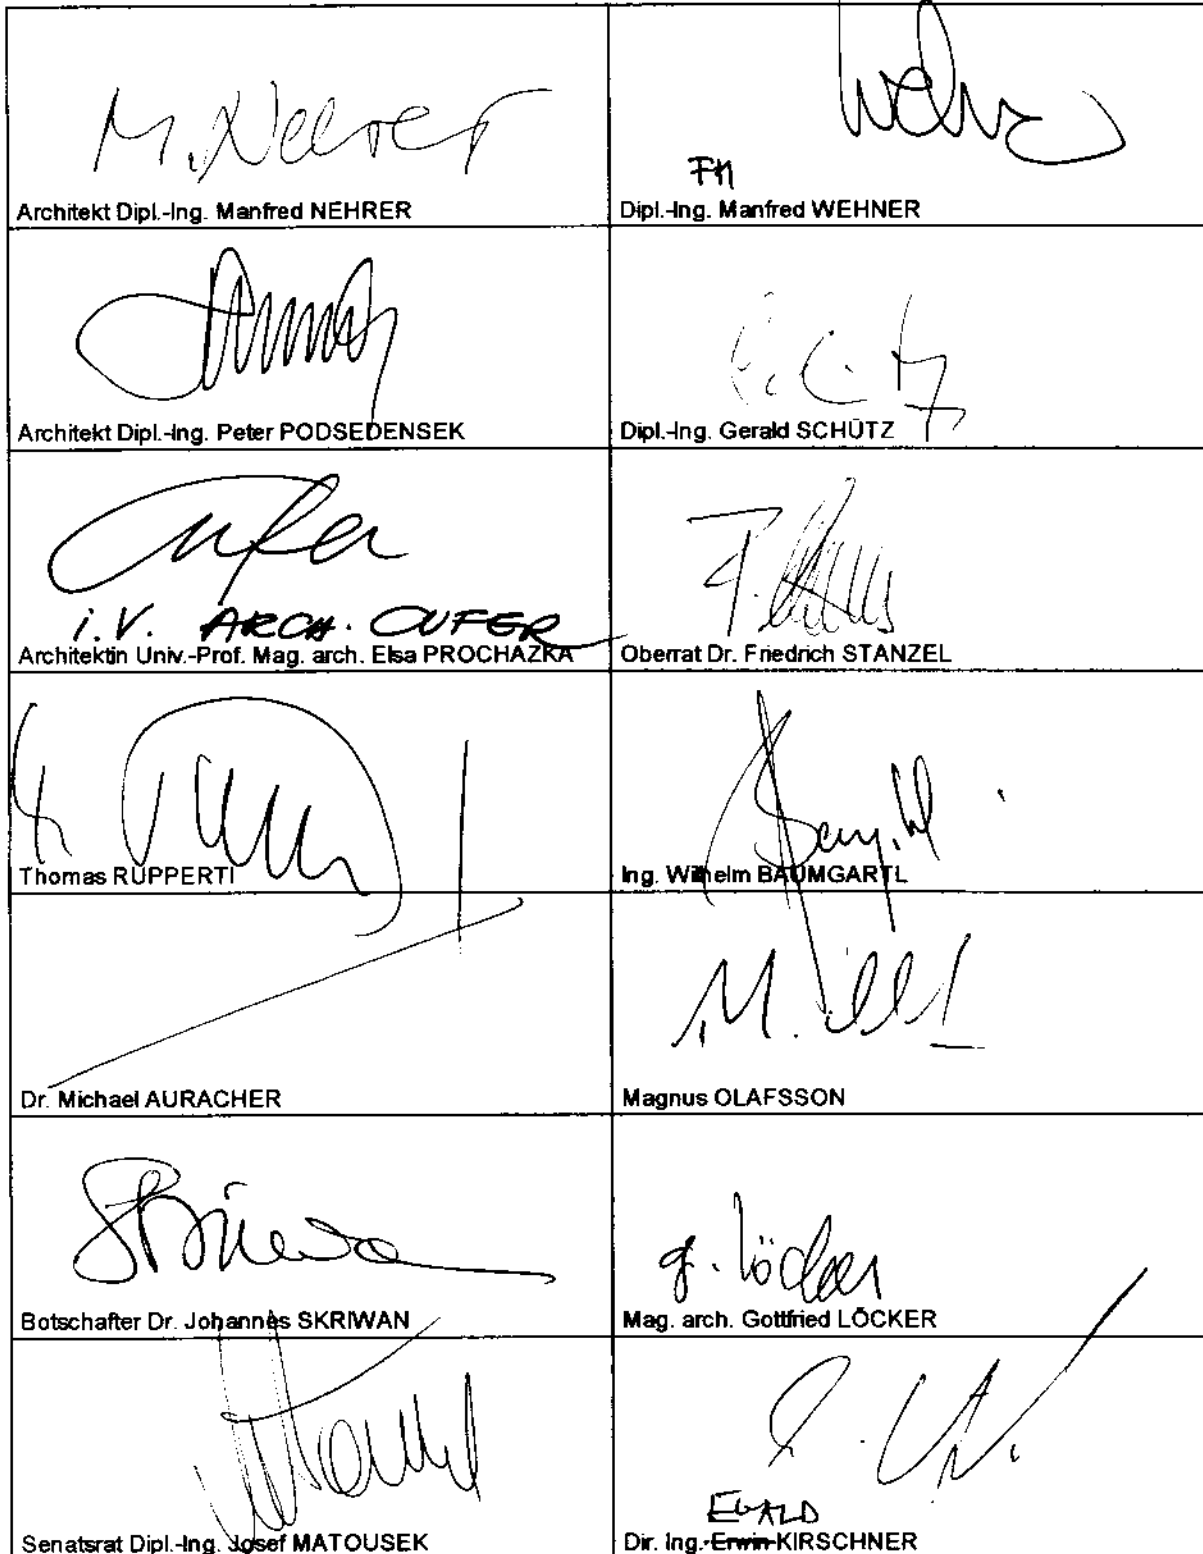 M. Nehrer
Architekt Dipl.-Ing. Manfred NEHRER
Wehner
FH
Dipl.-Ing. Manfred WEHNER
Architekt Dipl.-Ing. Peter PODSEDENSEK
Dipl.-Ing. Gerald SCHÜTZ
Cufer
i.V. ARCH. CUFER
Architektin Univ.-Prof. Mag. arch. Elsa PROCHAZKA
Oberrat Dr. Friedrich STANZEL
Thomas RUPPERTI
Ing. Wilhelm BAUMGARTL
Dr. Michael AURACHER
Magnus OLAFSSON
Skriwan
Botschafter Dr. Johannes SKRIWAN
G. Löcker
Mag. arch. Gottfried LÖCKER
Senatsrat Dipl.-Ing. Josef MATOUSEK
EWALD
Dir. Ing. Erwin KIRSCHNER